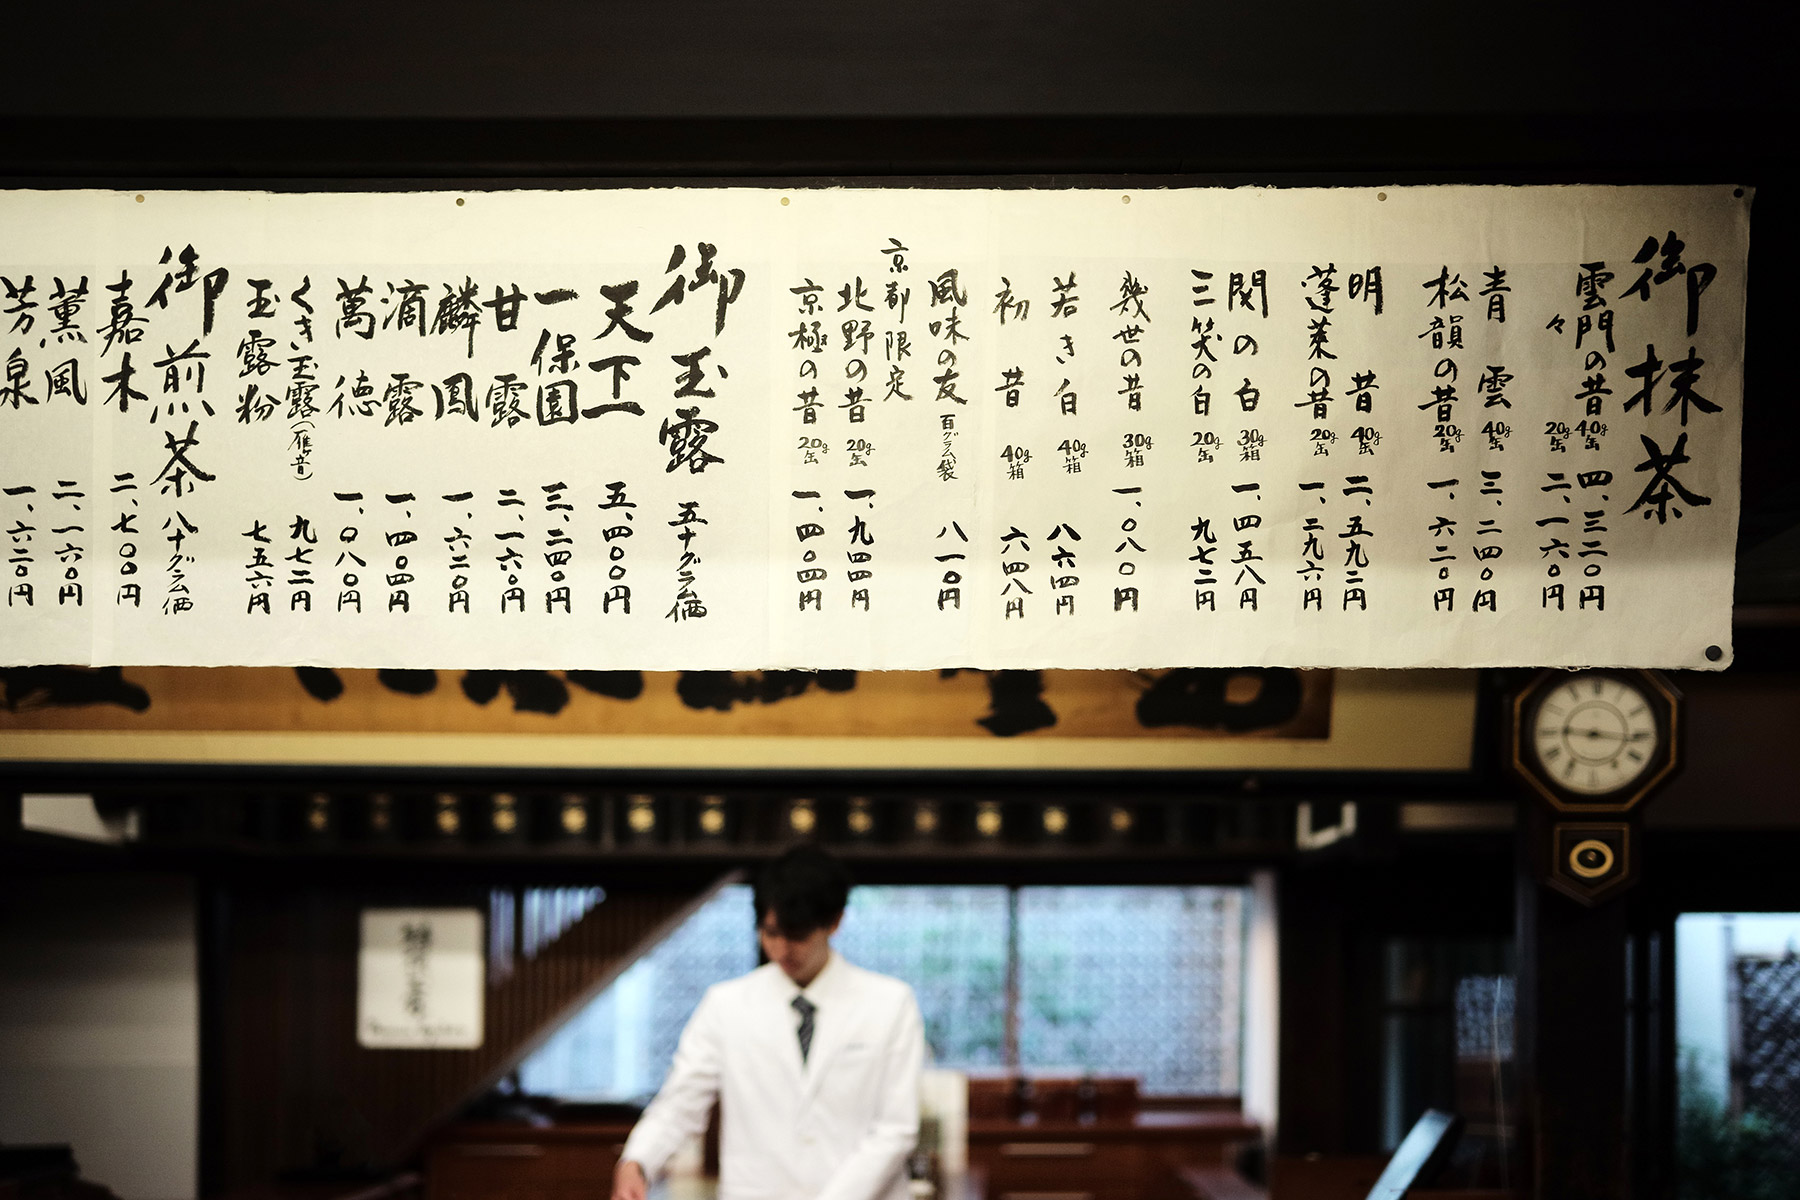 御抹茶
雲門の昔 40g缶 四、三二〇円
々 20g缶 二、一六〇円
青雲 40g缶 三、二四〇円
松韻の昔 20g缶 一、六二〇円
明昔 40g缶 二、五九二円
蓬莱の昔 20g缶 一、二九六円
関の白 30g箱 一、四五八円
三笑の白 20g缶 九七二円
幾世の昔 30g箱 一、〇八〇円
若き白 40g箱 八六四円
初昔 40g箱 六四八円
風味の友 百グラム袋 八一〇円
京都限定
北野の昔 20g缶 一、九四四円
京極の昔 20g缶 一、四〇四円
御玉露 五十グラム価
天下一 五、四〇〇円
一保園 三、二四〇円
甘露 二、一六〇円
麟鳳 一、六二〇円
滴露 一、四〇四円
萬徳 一、〇八〇円
くき玉露(雁音) 九七二円
玉露粉 七五六円
御煎茶 八十グラム価
嘉木 二、七〇〇円
薫風 二、一六〇円
芳泉 一、六二〇円